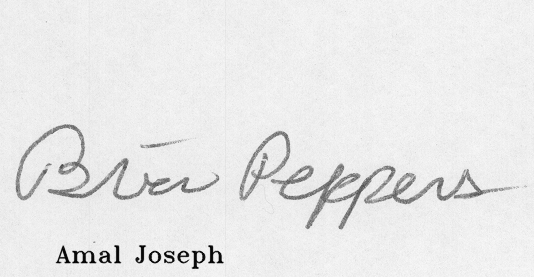 Brian Peppers
Amal Joseph